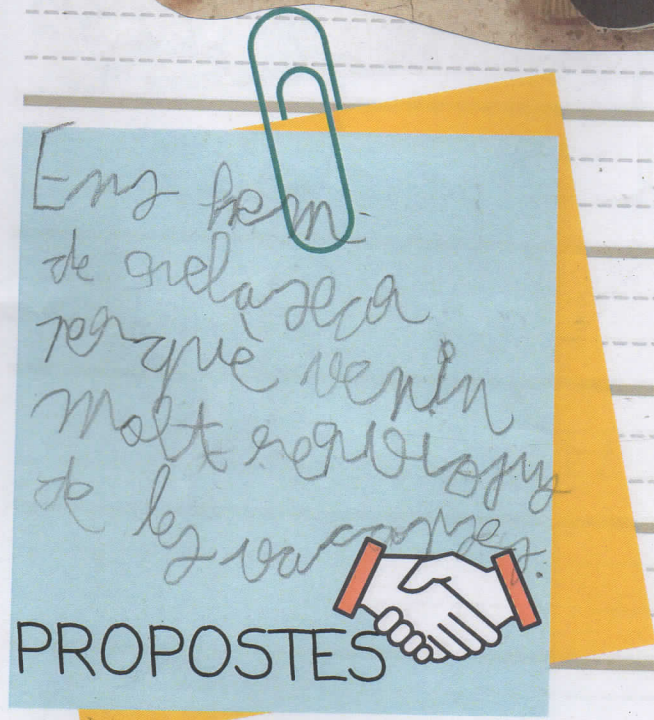 Ens hem
de relaxar
perquè venim
molt
de les vacances.
PROPOSTES